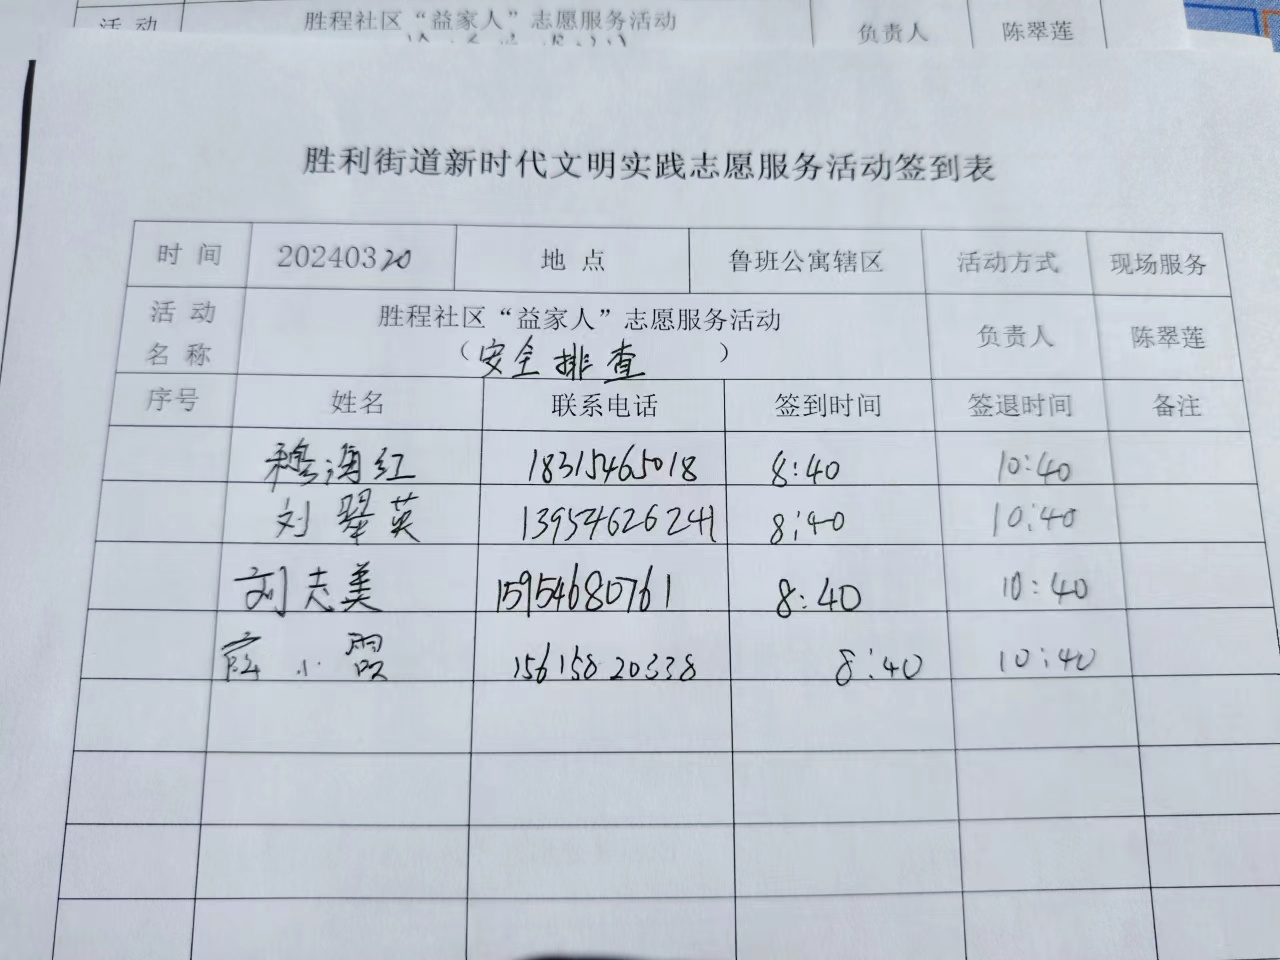 活 动 胜程社区“益家人”志愿服务活动 负责人 陈翠莲
胜利街道新时代文明实践志愿服务活动签到表
时 间 20240320 地 点 鲁班公寓辖区 活动方式 现场服务
活 动 名 称 胜程社区“益家人”志愿服务活动 负责人 陈翠莲
（安全排查）
序号 姓名 联系电话 签到时间 签退时间 备注
穆海红 18315465018 8:40 10:40
刘翠英 13954626241 8:40 10:40
刘志美 15954680761 8:40 10:40
小 15615820338 8:40 10:40